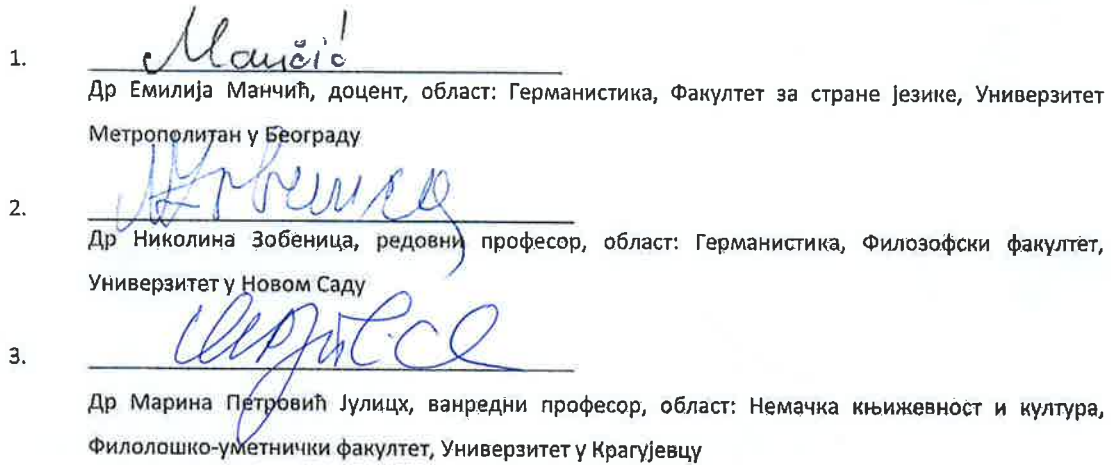 1. Манчић
Др Емилија Манчић, доцент, област: Германистика, Факултет за стране језике, Универзитет
Метрополитан у Београду
2.
Др Николина Зобеница, редовни професор, област: Германистика, Филозофски факултет,
Универзитет у Новом Саду
3.
Др Марина Петровић Јулицх, ванредни професор, област: Немачка књижевност и култура,
Филолошко-уметнички факултет, Универзитет у Крагујевцу